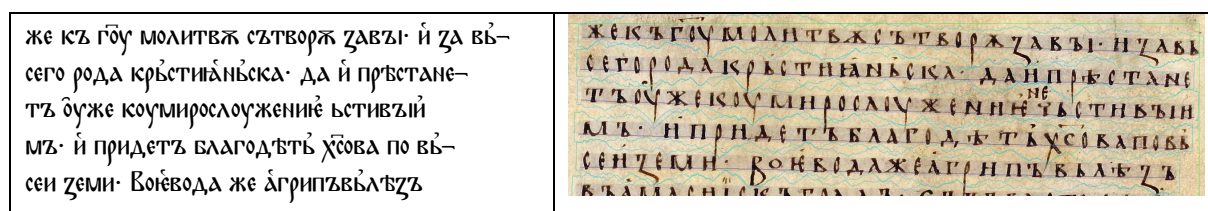 же къ го҃у молитвѫ сътворѫ ꙁавъі· и҆ ꙁа вь҆–
сего рода крь҆стиꙗ҆нь҆ска· да и҆ прѣстане–
тъ о҆уже коумирослоужениѥ҆ ьстивъіи҆
мъ· и҆ придетъ благодѣть҆ хс҃ова по вь҆–
сеи ꙁеми· Воѥ҆вода же а҆грипъвь҆лѣꙁъ
жекъго҃умолитвѫсътворѫꙁавъі· иꙁавь
сегородакрьстиꙗ҆ньска· даи҆прѣстане
тъо҆ужекоумирослоужениѥ҆не чьстивъіи
мъ· ипридетъблагодѣть҆хс҃оваповь҆
сеи҆ꙁеми· воѥ҆водажеа҆грипъвьлѣꙁъ